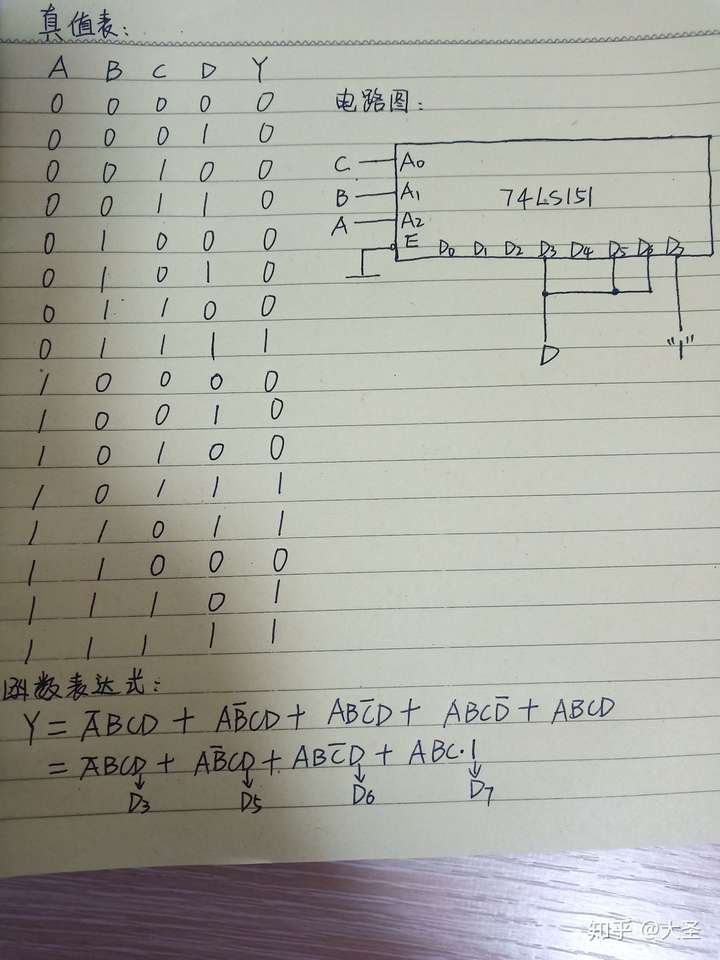 真值表:
A B C D Y
0 0 0 0 0
0 0 0 1 0
0 0 1 0 0
0 0 1 1 0
0 1 0 0 0
0 1 0 1 0
0 1 1 0 0
0 1 1 1 1
1 0 0 0 0
1 0 0 1 0
1 0 1 0 0
1 0 1 1 1
1 1 0 1 1
1 1 0 0 0
1 1 1 0 1
1 1 1 1 1
电路图:
C A0
B A1 74LS151
A A2
E D0 D1 D2 D3 D4 D5 D6 D7
D "1"
函数表达式:
Y = A̅BCD + AB̅CD + ABC̅D + ABCD̅ + ABCD
= A̅BCD + AB̅CD + ABC̅D + ABC·1
D3 D5 D6 D7
知乎 @大圣